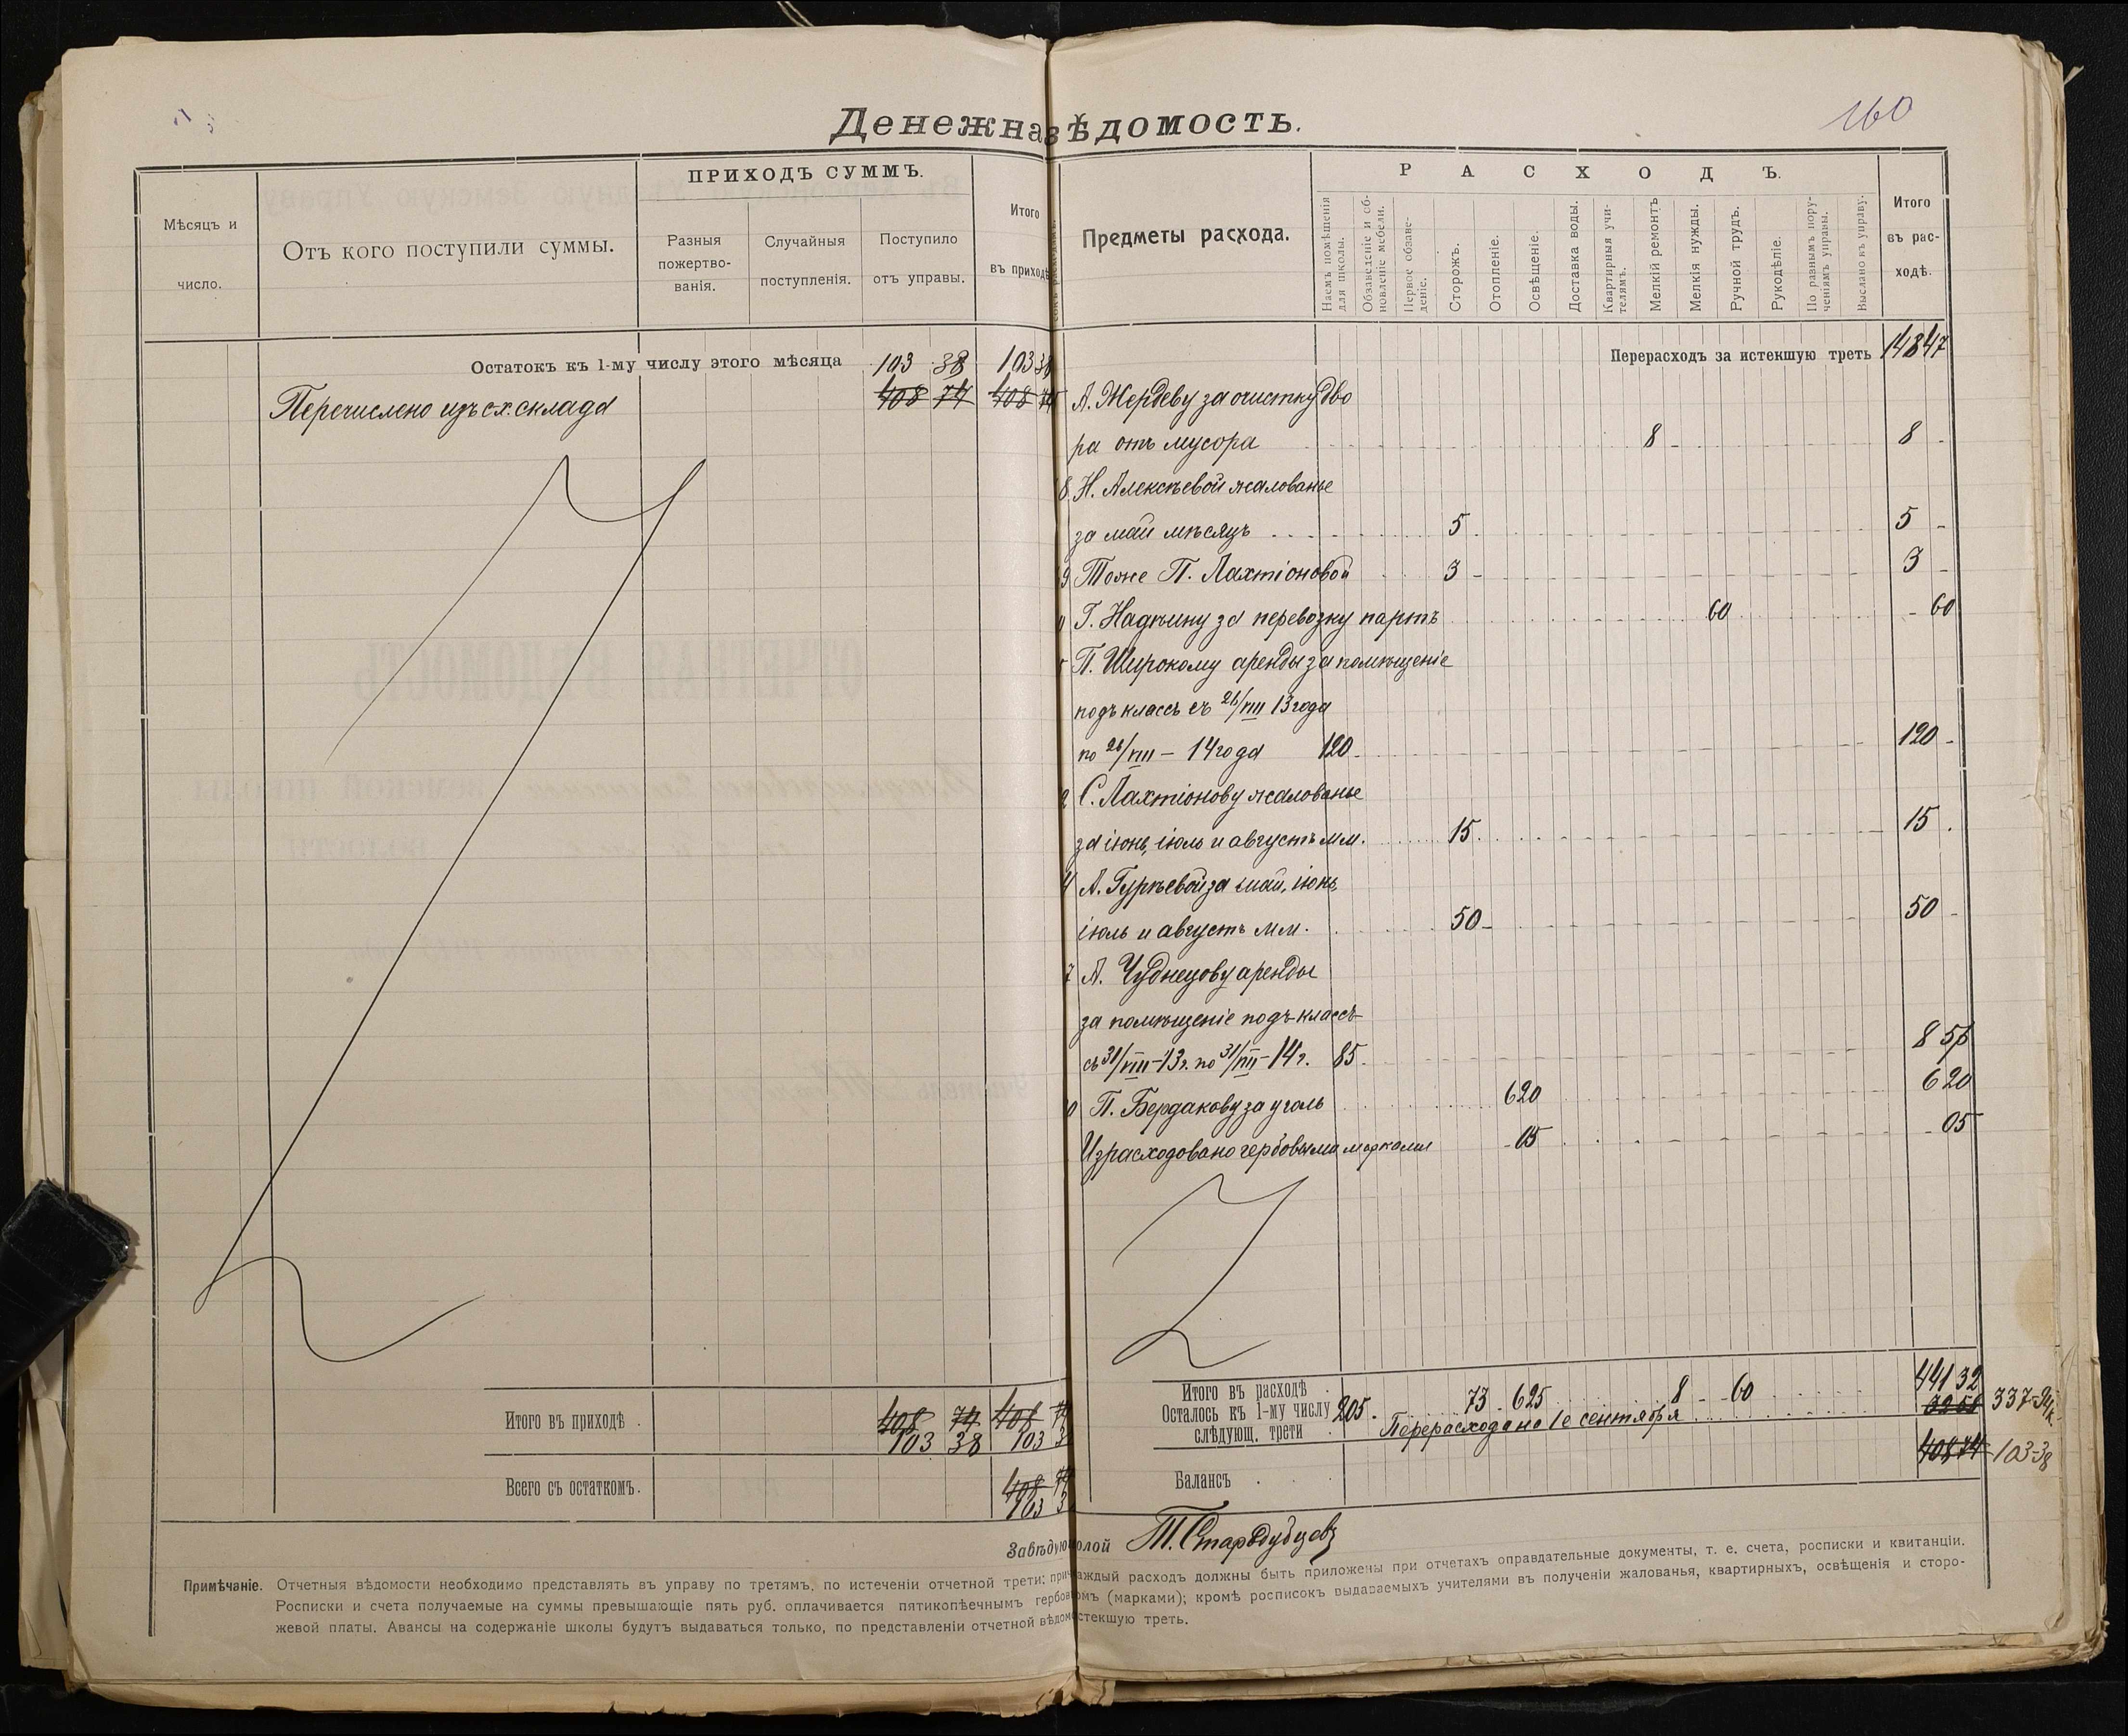 160
Денежна вѣдомость.
Мѣсяцъ и число.
Отъ кого поступили суммы.
ПРИХОДЪ СУММЪ.
Разныя пожертвованія.
Случайныя поступленія.
Поступило отъ управы.
Итого въ приходѣ
Предметы расхода.
РАСХОДЪ.
Наемъ помѣщенія для школы.
Обзаведеніе и обновленіе мебели.
Первое обзаведеніе.
Сторожъ.
Отопленіе.
Освѣщеніе.
Доставка воды.
Квартирныя учителямъ.
Мелкій ремонтъ
Мелкія нужды.
Ручной трудъ.
Рукодѣліе.
По разнымъ порученіямъ управы.
Выслано въ управу.
Итого въ расходѣ.
Остатокъ къ 1-му числу этого мѣсяца 103 38 103 38
Перечислено изъ сх. склада 408 74 408 74
Итого въ приходѣ . 408 74 408 74
103 38 103 3
Всего съ остаткомъ. 408 74
103 3
Перерасходъ за истекшую треть 148 47
А. Жердеву за очистку дво
ра отъ мусора 8 - 8 -
8 Н. Алексѣевой жалованье
за май мѣсяцъ 5 5 -
9 Тоже П. Лахтіоновой 3 - 3 -
Г. Надѣину за перевозку партъ 60 - 60
П. Широкому аренды за помѣщеніе
подъ классъ съ 26/VIII 13 года
по 26/VIII - 14 года 120 120 -
С. Лахтіонову жалованье
за іюнь, іюль и августъ мм. 15 15
4 А. Гурѣевой за май, іюнь,
іюль и августъ мм. 50 - 50 -
7 А. Чуднецову аренды
за помѣщеніе подъ классъ
съ 31/VIII-13 г. по 31/VIII-14 г. 85 85
0 П. Бердакову за уголь 6 20 6 20
Израсходовано гербовыми марками - 05 - 05
Итого въ расходѣ . 205 73 - 6 25 8 - - 60 441 32
Осталось къ 1-му числу слѣдующ. трети . Перерасхода на 1е сентября 32 58 337-94к.
Балансъ . 408 74 103-38
Завѣдую олой Т. Стародубцовъ
Примѣчаніе. Отчетныя вѣдомости необходимо представлять въ управу по третямъ, по истеченіи отчетной трети: прич аждый расходъ должны быть приложены при отчетахъ оправдательные документы, т. е. счета, росписки и квитанціи.
Росписки и счета получаемые на суммы превышающіе пять руб. оплачивается пятикопѣечнымъ гербов омъ (марками); кромѣ росписокъ выдаваемыхъ учителями въ полученіи жалованья, квартирныхъ, освѣщенія и сторо-
жевой платы. Авансы на содержаніе школы будутъ выдаваться только, по представленіи отчетной вѣдомо стекшую треть.